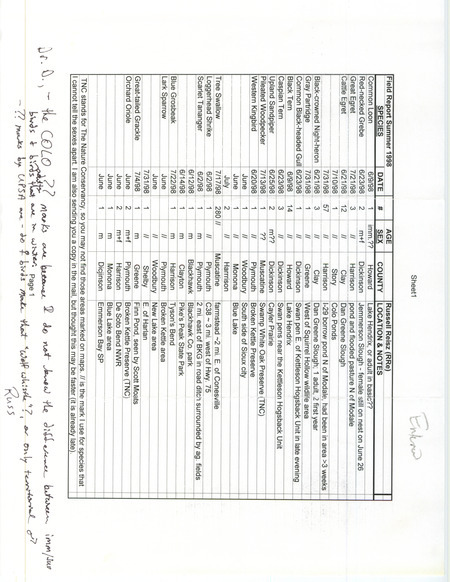 Sheet1
Field Report Summer 1998 Russell Reisz (RRe)
SPECIES DATE # AGE SEX COUNTY LOCATION & NOTES
Common Loon 6/9/98 1 imm.?? Howard Lake Hendrix, or adult in basic??
Red-necked Grebe 6/23/98 2 m+f Dickinson Jemmerson Slough - female still on nest on June 26
Great Egret 7/21/98 3 // Harrison pond and flooded pasture N of Modale
Cattle Egret 6/21/98 12 // Clay Dan Greene Slough
7/10/98 1 // Story Colo Ponds
7/31/98 57 // Harrison I-29 borrow pond N of Modale, had been in area >3 weeks
Black-crowned Night-heron 6/21/98 3 // Clay Dan Greene Slough, 1 adult, 2 first year
Gray Partridge 7/31/98 1 // Greene West of Squirrel Hollow wildlife area
Common Black-headed Gull 6/23/98 1 // Dickinson Swan pen E. of Kettleson Hogsback Unit in late evening
Black Tern 6/9/98 14 // Howard Lake Hendrix
Caspian Tern 6/23/98 3 // Dickinson Swan pens near the Kettleson Hogsback Unit
Upland Sandpiper 6/25/98 2 m?? Dickinson Cayler Prairie
Pileated Woodpecker 7/13/98 1 ?? Muscatine Swamp White Oak Preserve (TNC)
Western Kingbird 6/20/98 1 // Plymouth Broken Kettle Preserve
June // Harrison
June // Woodbury South side of Sioux city
June 2 // Monona Blue Lake
Tree Swallow 7/17/98 280 // Muscatine farmstead ~2 mi. E. of Conesville
Loggerhead Shrike 6/2/98 1 // Plymouth C38 ~ 3 mi. west of Hwy. 75
Scarlet Tananger 6/2/98 1 m Plymouth 2 mi. East of BKG in road ditch surrounded by ag. fields
6/12/98 1 m Blackhawk Blackhawk Co. park
6/14/98 1 m Clayton Pike's Peak State Park
Blue Grosbeak 7/22/98 1 m Harrison Tyson's Bend
Lark Sparrow June // Plymouth Broken Kettle area
June // Woodbury New Stone area
7/31/98 1 // Shelby E. of Harlan
Great-tailed Grackle 7/4/98 1 m Greene Finn Pond, seen by Scott Moats
Orchard Oriole June 2 m+f Plymouth Broken Kettle Preserve (TNC)
June 2 m+f Harrison De Soto Bend NWR
June 1 m Monona Blue Lake area
June 1 m Dickinson Emmerson Bay SP
TNC stands for The Nature Conservancy, so you may not find those areas marked on maps. // is the mark I use for species that
I cannot tell the sexes apart. I am also sending you a copy in the mail, but thought this may be faster (it is already late).
Page 1
Dr. D, - the COLO ?? marks are because I do not know the difference between imm/juv
birds & birds that are in winter.
- ?? marks by UPSA are - do ♀ give make that "wolf whistle"?, or only territorial ♂?
Russ